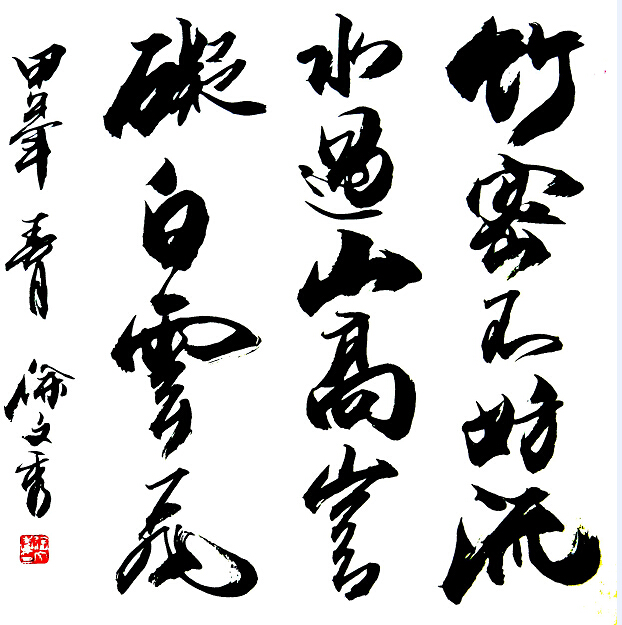 竹密不妨流
水過山高豈
礙白雲飛
甲午年 徐文秀